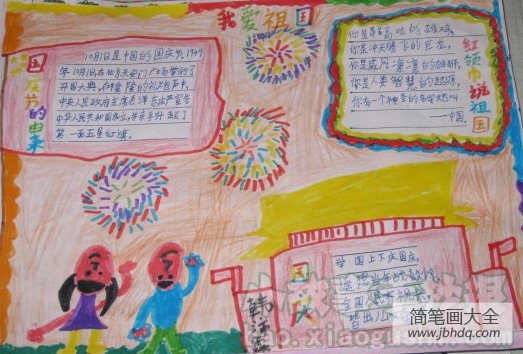 我爱祖国
国庆节的由来
10月1日是中国的国庆节1949
年10月1日在北京天安门广场举行了
开国大典,在隆隆的礼炮声中,
中央人民政府主席毛泽东庄严宣告
中华人民共和国成立,并亲手升起了
第一面五星红旗。
红领巾
祖国
你是早晨高鸣的雄鸡,
你是冲天腾飞的巨龙,
你是威风凛凛的雄狮,
你是人类智慧的起源,
你有一个神圣的名字,她叫
——中国。
国庆
举国上下庆国庆,
全国人民
简笔画大全
www.jbhdq.com